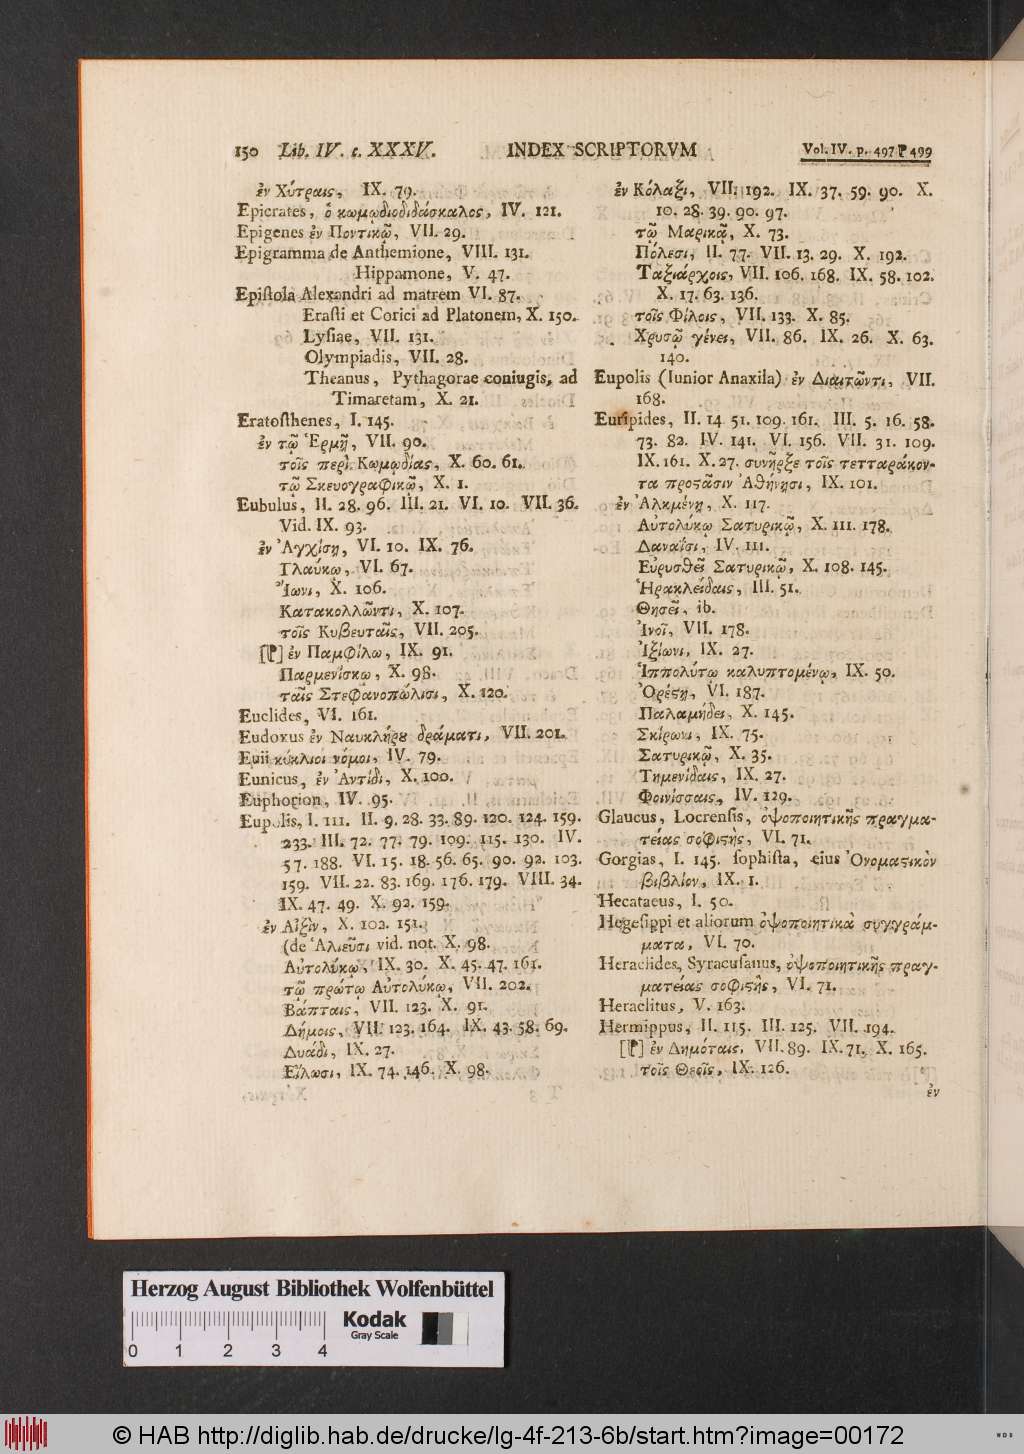 150 Lib. IV. c. XXXV. INDEX SCRIPTORVM Vol. IV. p. 497 P 499
ἐν Χύτραις, IX. 79.
Epicrates, ὁ κωμῳδιοδιδάσκαλος, IV. 121.
Epigenes ἐν Ποντικῷ, VII. 29.
Epigramma de Anthemione, VIII. 131.
Hippamone, V. 47.
Epiſtola Alexandri ad matrem VI. 87.
Eraſti et Corici ad Platonem, X. 150.
Lyſiae, VII. 131.
Olympiadis, VII. 28.
Theanus, Pythagorae coniugis, ad
Timaretam, X. 21.
Eratoſthenes, I. 145.
ἐν τῷ Ἑρμῇ, VII. 90.
τοῖς περὶ Κωμῳδίας, X. 60. 61.
τῷ Σκευογραφικῷ, X. 1.
Eubulus, II. 28. 96. III. 21. VI. 10. VII. 36.
Vid. IX. 93.
ἐν Ἀγχίσῃ, VI. 10. IX. 76.
Γλαύκω, VI. 67.
Ἴωνι, X. 106.
Κατακολλῶντι, X. 107.
τοῖς Κυβευταῖς, VII. 205.
[P] ἐν Παμφίλω, IX. 91.
Παρμενίσκω, X. 98.
ταῖς Στεφανοπώλισι, X. 120.
Euclides, VI. 161.
Eudoxus ἐν Ναυκλήρȣ δράματι, VII. 201.
Euii κύκλιοι νόμοι, IV. 79.
Eunicus, ἐν Ἀντίδι, X. 100.
Euphorion, IV. 95.
Eupolis, I. 111. II. 9. 28. 33. 89. 120. 124. 159.
233. III. 72. 77. 79. 109. 115. 130. IV.
57. 188. VI. 15. 18. 56. 65. 90. 92. 103.
159. VII. 22. 83. 169. 176. 179. VIII. 34.
IX. 47. 49. X. 92. 159.
ἐν Αἰξὶν, X. 102. 151.
(de Ἁλιεῦσι vid. not. X. 98.
Αὐτολύκῳ, IX. 30. X. 45. 47. 161.
τῷ πρώτῳ Αὐτολύκῳ, VII. 202.
Βάπταις, VII. 123. X. 91.
Δήμοις, VII. 123. 164. IX. 43. 58. 69.
Δυάδι, IX. 27.
Εἵλωσι, IX. 74. 146. X. 98.
ἐν Κόλαξι, VII. 192. IX. 37. 59. 90. X.
10. 28. 39. 90. 97.
τῷ Μαρικᾷ, X. 73.
Πόλεσι, II. 77. VII. 13. 29. X. 192.
Ταξιάρχοις, VII. 106. 168. IX. 58. 102.
X. 17. 63. 136.
τοῖς Φίλοις, VII. 133. X. 85.
Χρυσῷ γένει, VII. 86. IX. 26. X. 63.
140.
Eupolis (Iunior Anaxila) ἐν Διαιτῶντι, VII.
168.
Euripides, II. 14. 51. 109. 161. III. 5. 16. 58.
73. 82. IV. 141. VI. 156. VII. 31. 109.
IX. 161. X. 27. συνῆρξε τοῖς τετταράκον-
τα προϛᾶσιν Ἀθήνῃσι, IX. 101.
ἐν Ἀλκμένῃ, X. 117.
Αὐτολύκῳ Σατυρικῷ, X. 111. 178.
Δαναΐσι, IV. 111.
Εὐρυσθεῖ Σατυρικῷ, X. 108. 145.
Ἡρακλείδαις, III. 51.
Θησεῖ, ib.
Ἰνοῖ, VII. 178.
Ἰξίωνι, IX. 27.
Ἱππολύτῳ καλυπτομένῳ, IX. 50.
Ὀρέϛῃ, VI. 187.
Παλαμήδει, X. 145.
Σκίρωνι, IX. 75.
Σατυρικῷ, X. 35.
Τημενίδαις, IX. 27.
Φοινίσσαις, IV. 129.
Glaucus, Locrenſis, ὀψοποιητικῆς πραγμα-
τείας σοφιϛὴς, VI. 71.
Gorgias, I. 145. ſophiſta, eius Ὀνομαϛικὸν
βιβλίον, IX. 1.
Hecataeus, I. 50.
Hegeſippi et aliorum ὀψοποιητικὰ συγγράμ-
ματα, VI. 70.
Heraclides, Syracuſanus, ὀψοποιητικῆς πραγ-
ματείας σοφιϛὴς, VI. 71.
Heraclitus, V. 163.
Hermippus, II. 115. III. 125. VII. 194.
[P] ἐν Δημόταις, VII. 89. IX. 71. X. 165.
τοῖς Θεοῖς, IX. 126.
ἐν
Herzog August Bibliothek Wolfenbüttel
Kodak
Gray Scale
0 1 2 3 4
© HAB http://diglib.hab.de/drucke/lg-4f-213-6b/start.htm?image=00172